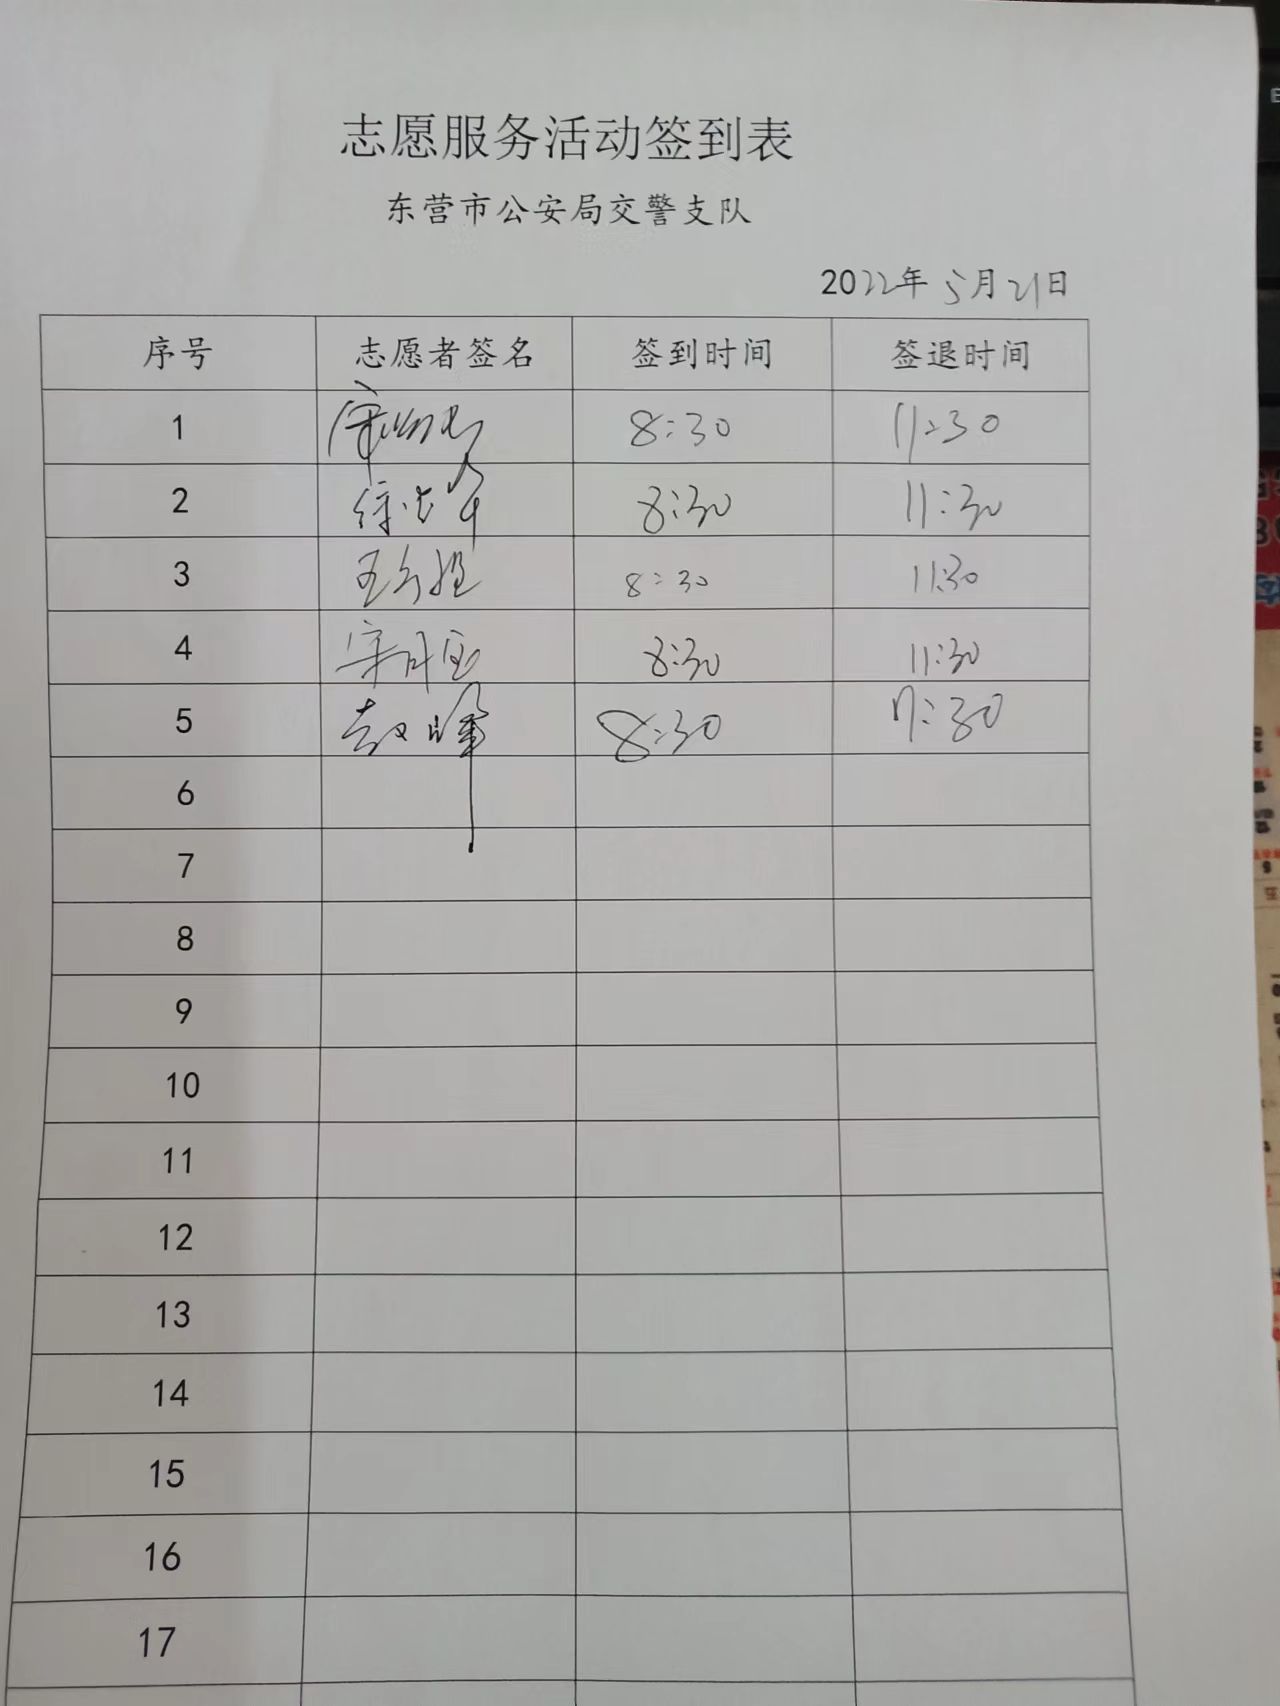 志愿服务活动签到表
东营市公安局交警支队
2022年5月21日
序号 志愿者签名 签到时间 签退时间
1 8:30 11:30
2 8:30 11:30
3 8:30 11:30
4 8:30 11:30
5 赵峰 8:30 11:30
6
7
8
9
10
11
12
13
14
15
16
17